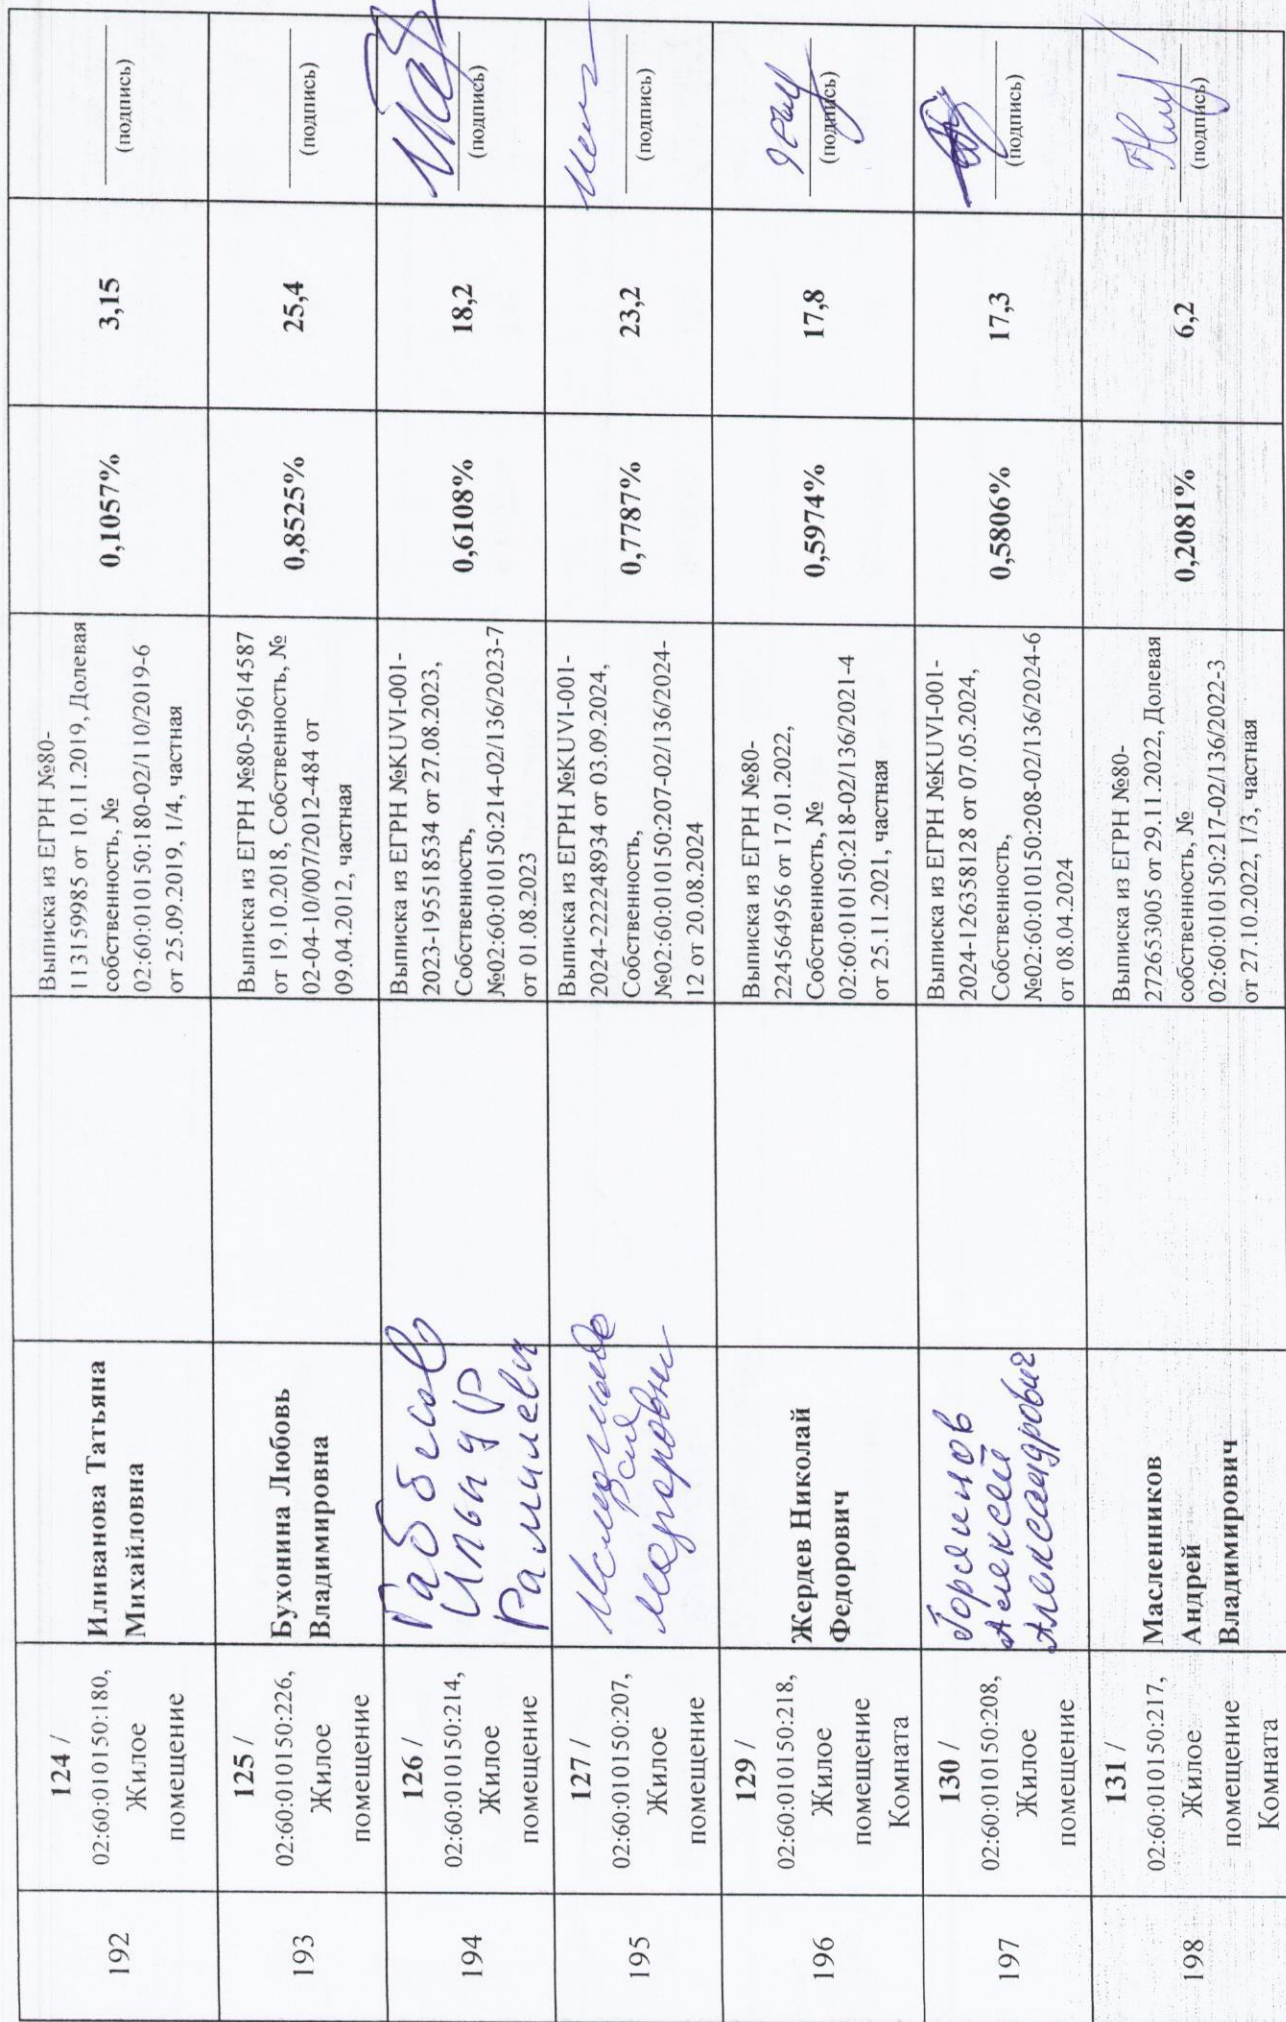 192
124 /
02:60:010150:180,
Жилое
помещение
Иливанова Татьяна
Михайловна
Выписка из ЕГРН №80-
113159985 от 10.11.2019, Долевая
собственность, №
02:60:010150:180-02/110/2019-6
от 25.09.2019, 1/4, частная
0,1057%
3,15
(подпись)
193
125 /
02:60:010150:226,
Жилое
помещение
Бухонина Любовь
Владимировна
Выписка из ЕГРН №80-59614587
от 19.10.2018, Собственность, №
02-04-10/007/2012-484 от
09.04.2012, частная
0,8525%
25,4
(подпись)
194
126 /
02:60:010150:214,
Жилое
помещение
Выписка из ЕГРН №KUVI-001-
2023-195518534 от 27.08.2023,
Собственность,
№02:60:010150:214-02/136/2023-7
от 01.08.2023
0,6108%
18,2
(подпись)
195
127 /
02:60:010150:207,
Жилое
помещение
Выписка из ЕГРН №KUVI-001-
2024-222248934 от 03.09.2024,
Собственность,
№02:60:010150:207-02/136/2024-
12 от 20.08.2024
0,7787%
23,2
(подпись)
196
129 /
02:60:010150:218,
Жилое
помещение
Комната
Жердев Николай
Федорович
Выписка из ЕГРН №80-
224564956 от 17.01.2022,
Собственность, №
02:60:010150:218-02/136/2021-4
от 25.11.2021, частная
0,5974%
17,8
(подпись)
197
130 /
02:60:010150:208,
Жилое
помещение
Алексей
Александрович
Выписка из ЕГРН №KUVI-001-
2024-126358128 от 07.05.2024,
Собственность,
№02:60:010150:208-02/136/2024-6
от 08.04.2024
0,5806%
17,3
(подпись)
198
131 /
02:60:010150:217,
Жилое
помещение
Комната
Масленников
Андрей
Владимирович
Выписка из ЕГРН №80-
272653005 от 29.11.2022, Долевая
собственность, №
02:60:010150:217-02/136/2022-3
от 27.10.2022, 1/3, частная
0,2081%
6,2
(подпись)